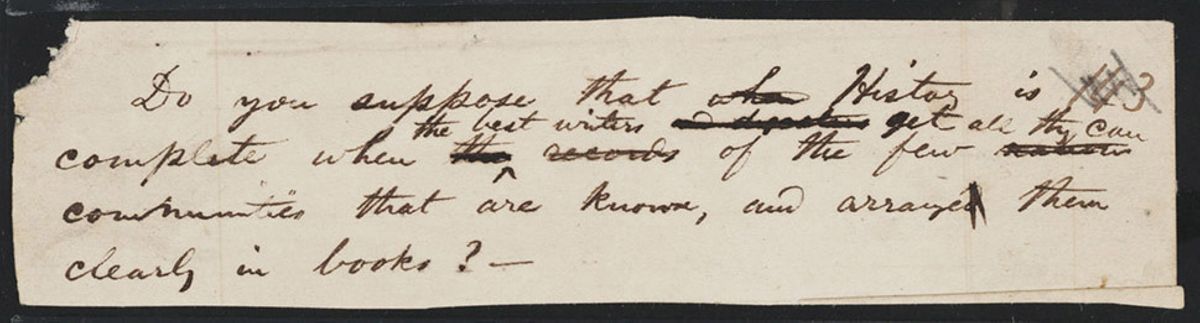 Do you suppose that when History is 143
the best writers and digesters get all thy can
complete when the records of the few nations
communities that are known, and arranged them
clearly in books? —